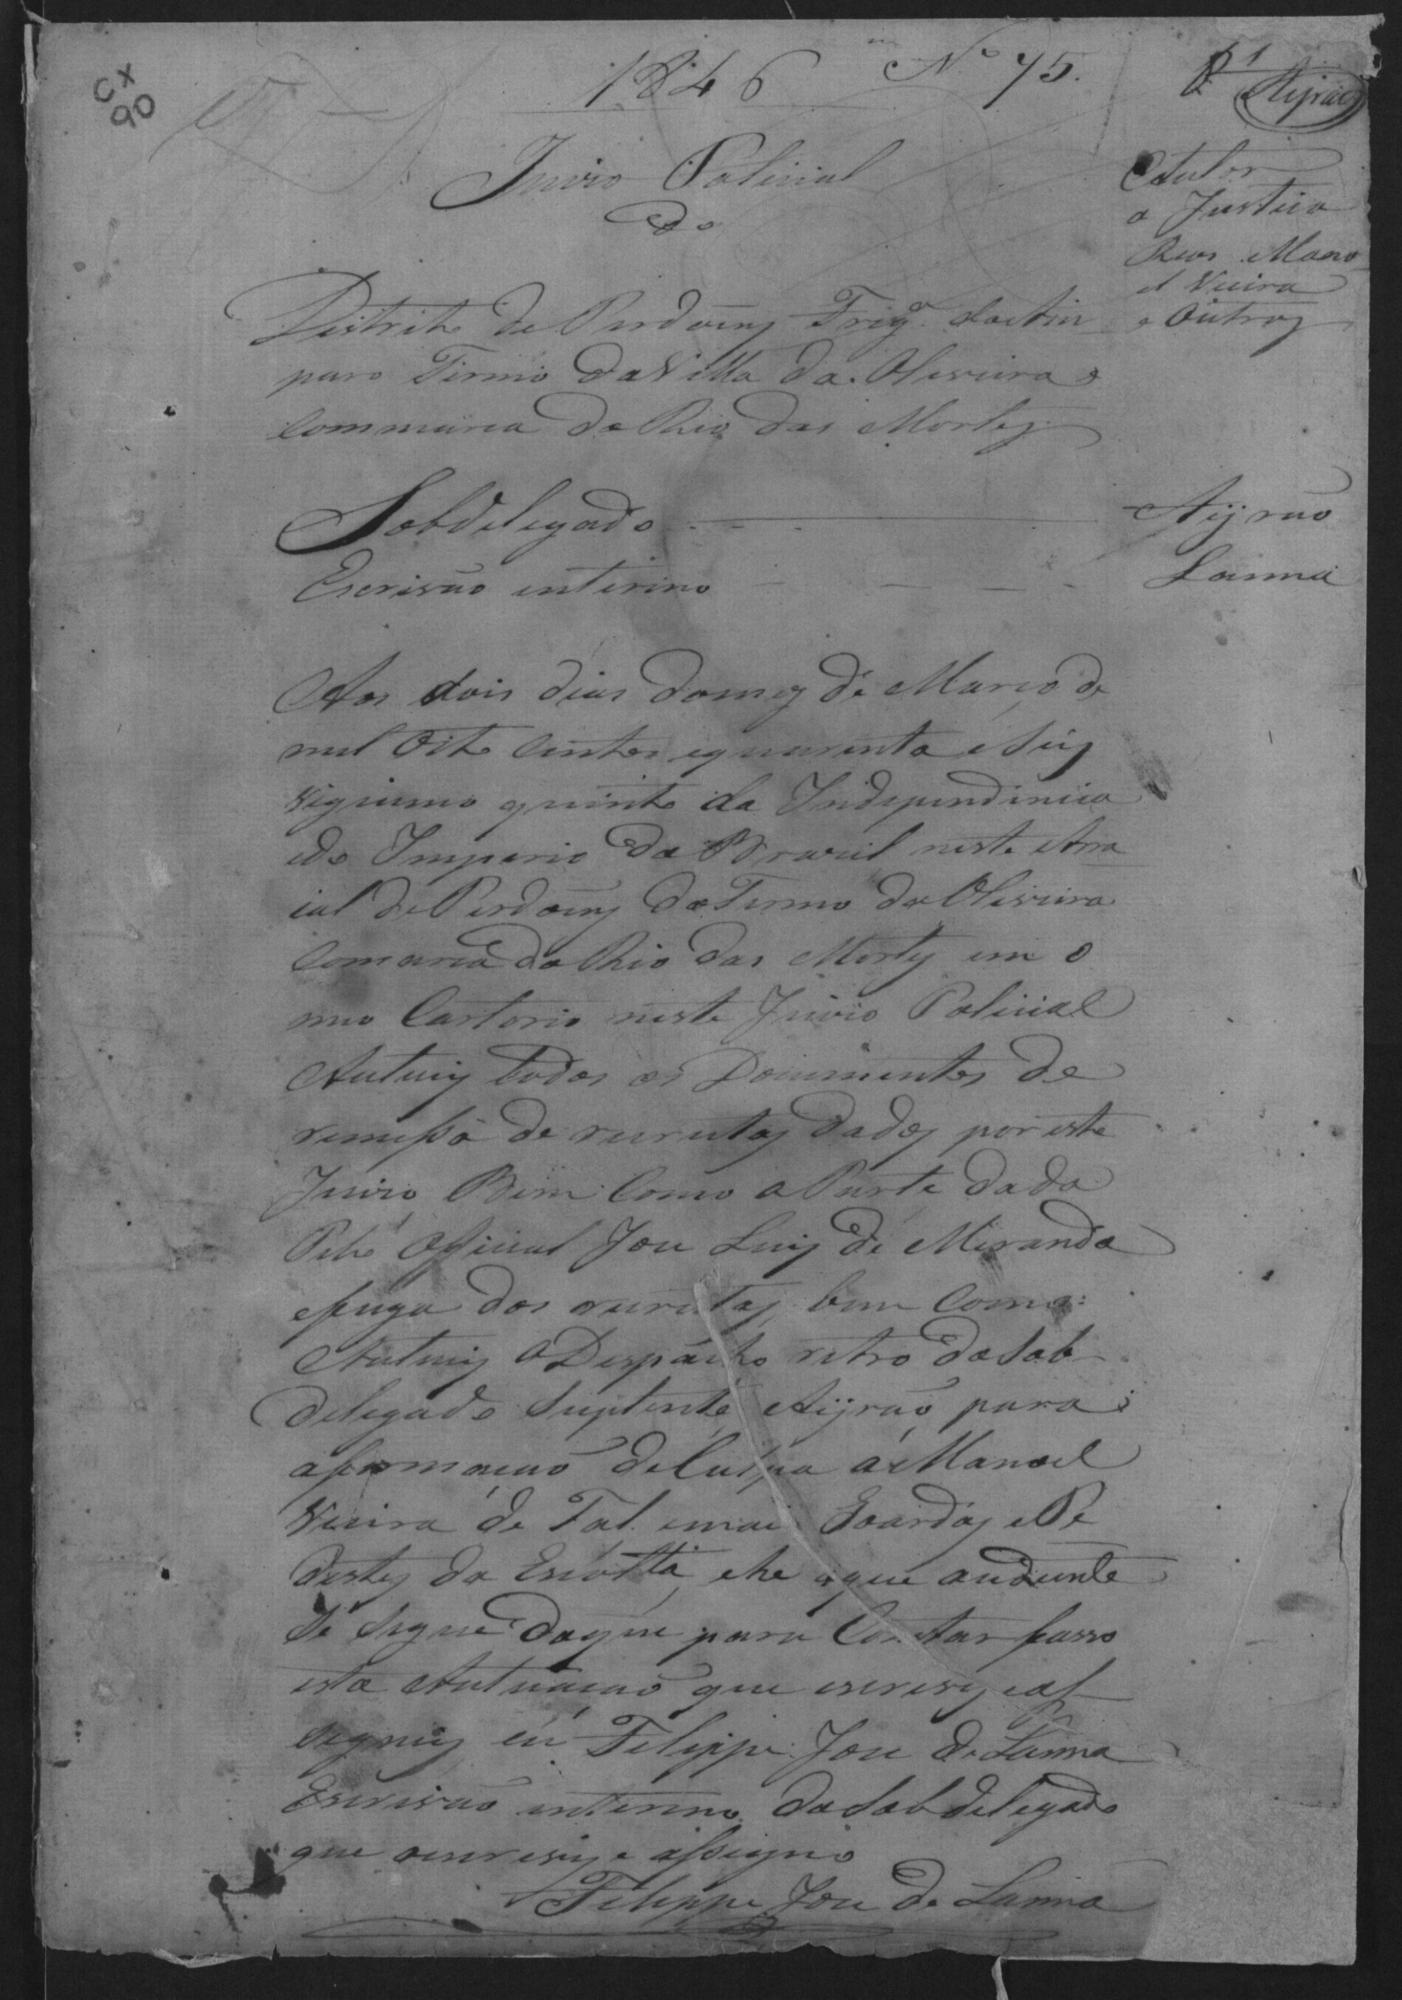 CX
90
1846 Nº 75.
f 1
Aijrão
Juizo Policial
do
Autor
a Justiça
Reos Mano
el Vieira
e Outros
Districto de Perdoens Frigª. do Am
paro Termo da Villa da Oliveira e
Commarca do Rio das Mortes
Sobdelegado Aijrão
Escrivão interino Lanna
Aos dois dias do mes de Março de
mil Oito Centos e quarenta e Seis
Vigissimo quinto da Independincia
e do Imperio do Brazil neste Arra
ial de Perdoens do Termo da Oliveira
Comarca do Rio das Mortes em o
meo Cartorio neste Juizo Policial
Autuey todos os Documentos de
remessa de recrutas dados por este
Juizo Bem Como a Parte dada
Pelo Official Joze Luis de Miranda
e fuga dos recrutas, bem Como
Autuey o Despacho retro do Sob
delegado Suplente Aijrão para
a formação de Culpa á Manoel
Vieira de Tal e mais Goardas e Pe
destes da Escolta, e he o que audiante
Se Segue do que para Constar fasso
esta Autuação que escrevy e as
signey eu Filippe Joze de Lanna
Escrivão interino do Sobdelegado
que o escrevy e assigno
Filippe Joze de Lanna